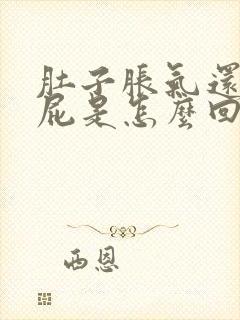 肚子脹氣還
屁是怎麼回
西恩